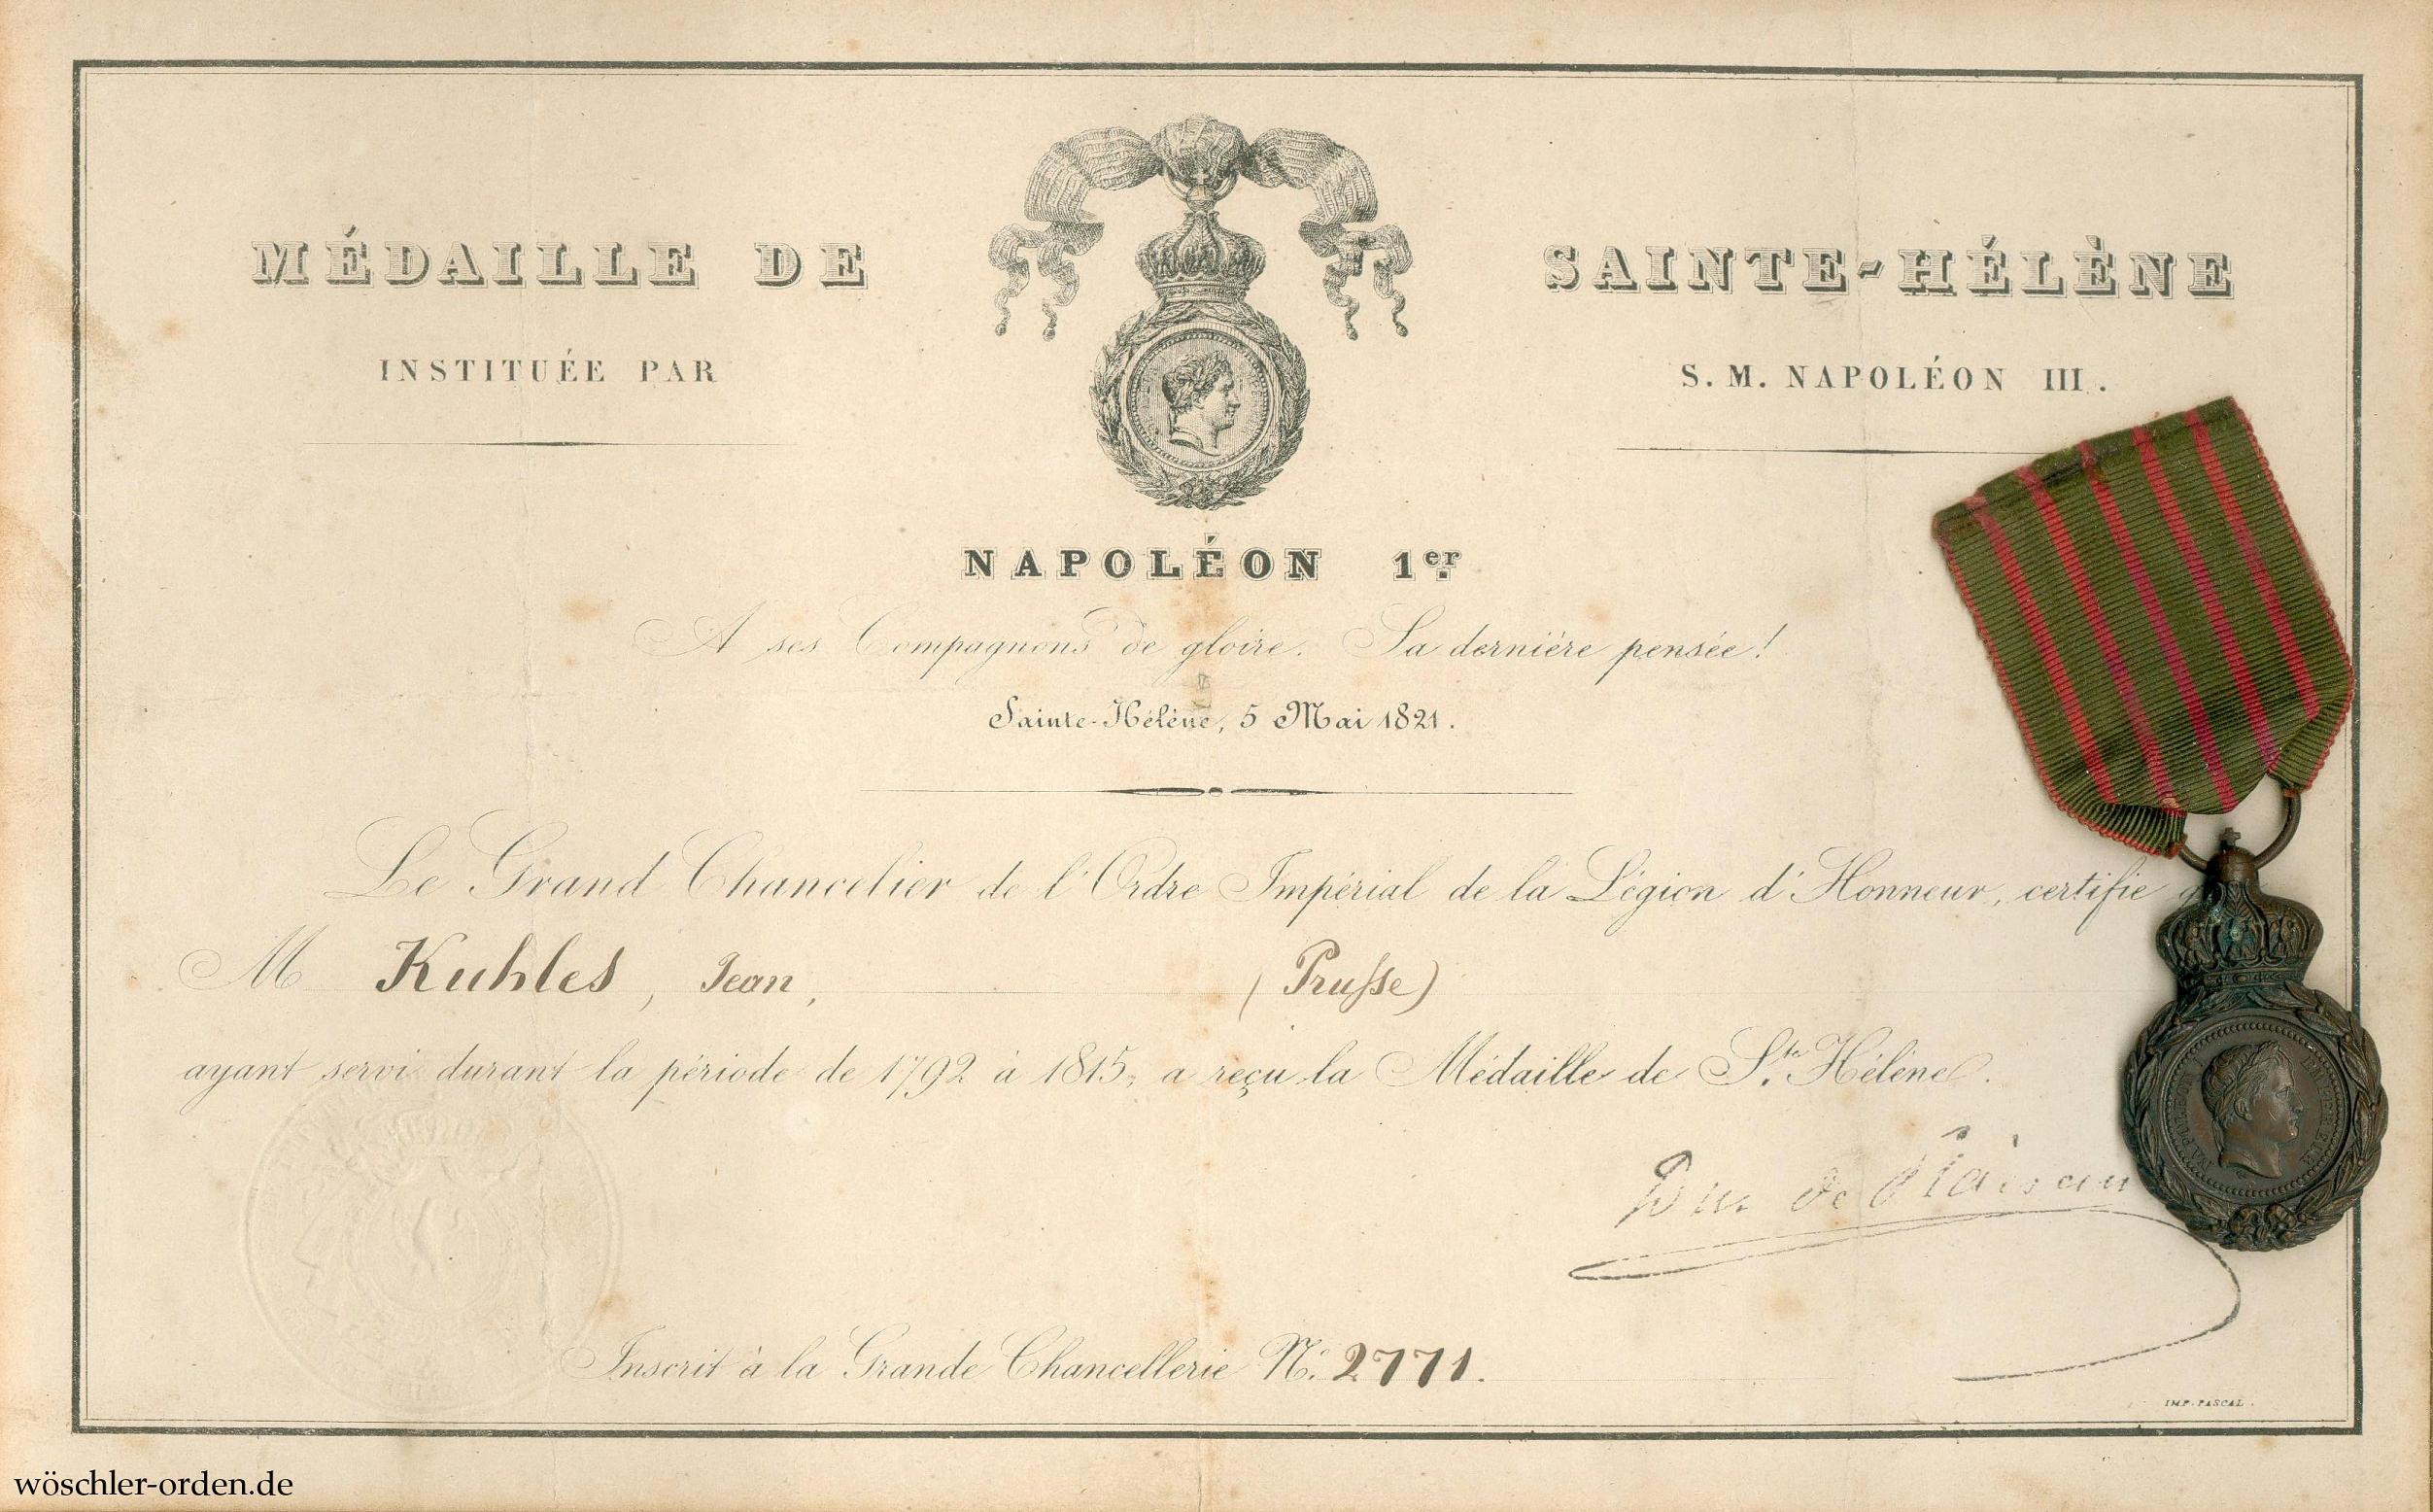 MÉDAILLE DE SAINTE-HÉLÈNE
INSTITUÉE PAR S. M. NAPOLÉON III.
NAPOLÉON 1er.
A ses Compagnons de gloire. Sa dernière pensée!
Sainte-Hélène, 5 Mai 1821.
Le Grand Chancelier de l'Ordre Impérial de la Légion d'Honneur, certifie
M Kuhles, Jean, (Prusse)
ayant servi durant la période de 1792 à 1815, a reçu la Médaille de Ste. Hélène.
Duc de Plaisance
Inscrit à la Grande Chancellerie No. 2771.
IMP. PASCAL.
NAPOLEON I EMPEREUR
wöschler-orden.de